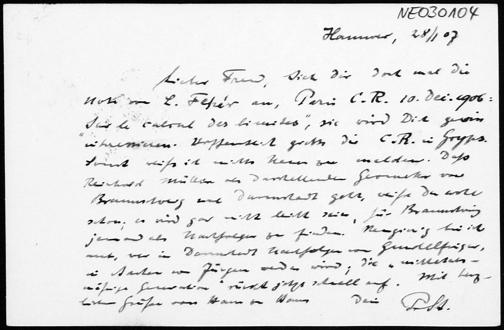 NE030104
Hannover, 28/1 07
Lieber Freund, Sieh Dir doch mal die
Note von L. Fejér an, Paris C.R. 10. Dec. 1906:
"Sur le calcul des limites", sie wird Dich gewiss
interessieren. Hoffentlich giebts die C.R. in Gryps.
Sonst weiss ich nichts Neues zu melden. Dass
Reinhard Müller als Darstellender Geometer von
Braunschweig nach Darmstadt geht, weisst Du wohl
schon; es wird gar nicht leicht sein, für Braunschweig
jemand als Nachfolger zu finden. Neugierig bin ich
auch, wer in Darmstadt Nachfolger von Gundelfinger,
in Aachen von Jürgens werden wird; die "mittel
mässige Generation" rückt jetzt schnell auf. Mit herz
lichen Grüssen von Haus zu Haus Dein P. St.